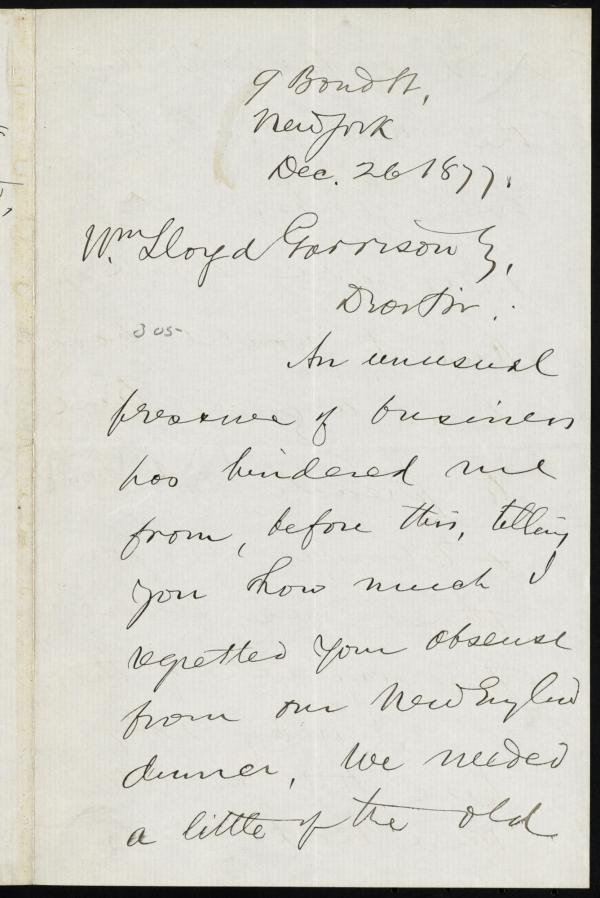 9 Bond St,
New York
Dec. 26 1877.
Wm. Lloyd Garrison
Dear Sir:
305
An unusual
pressure of business
has hindered me
from, before this, telling
you how much I
regretted your absense
from our New England
dinner. We needed
a little of the old